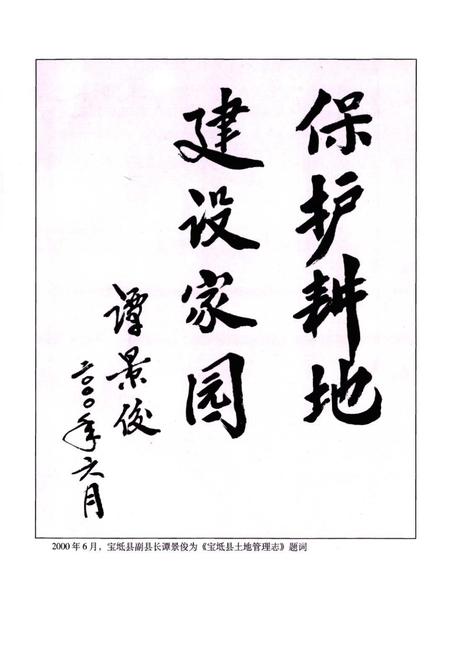 保护耕地
建设家园
谭景俊
二〇〇〇年六月
2000年6月，宝坻县副县长谭景俊为《宝坻县土地管理志》题词